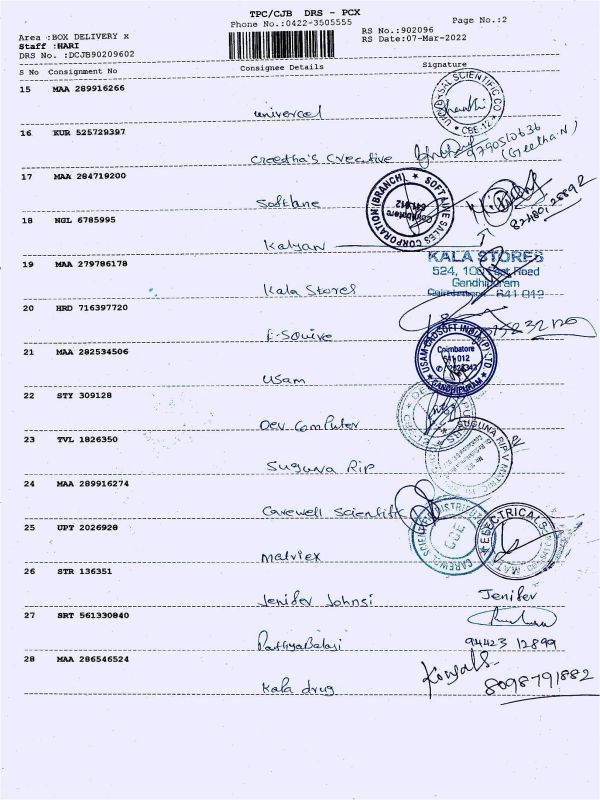 TPC/CJB DRS - PCX
Phone No.:0422-3505555
Page No.:2
Area :BOX DELIVERY X
Staff :HARI
DRS No. :DCJB90209602
RS No.:902096
RS Date:07-Mar-2022
S No Consignment No Consignee Details Signature
15 MAA 289916266
univercel
UNIVERSAL SCIENTIFIC CO
CBE-12
16 KUR 525729397
Creetha's Creative
9790510636
(Geetha.N)
17 MAA 284719200
Softlane
SOFTLANE SALES CORPORATION (BRANCH)
Coimbatore
641 012
18 NGL 6785995
Kalyan
19 MAA 279786178
Kala Stores
KALA STORES
524, 100 Feet Road
Gandhipuram
Coimbatore 641 012
20 HRD 716397720
E-Squive
21 MAA 282534506
Usam
USAM CADSOFT INDIA (P) LTD.
Coimbatore
641 012
GANDHIPURAM
22 STY 309128
Dev Computer
23 TVL 1826350
Suguna Rip
SUGUNA RIP V MATRIC
24 MAA 289916274
Carewell Scientifik
CBE
25 UPT 2026928
Matriex
ELECTRICALS
26 STR 136351
Jenifer Johnsi
Jenifer
27 SRT 561330840
PathyaBalaji
94423 12899
28 MAA 286546524
Kala drug
8098791882